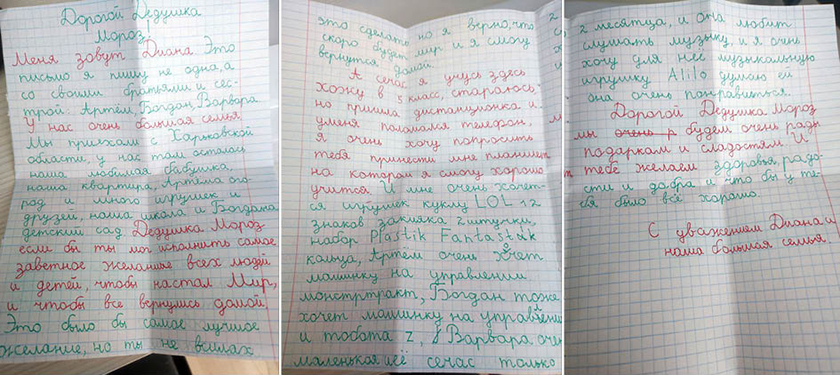 Дорогой Дедушка
Мороз
Меня зовут Диана Это
письмо я пишу не одна, а
со своими братьями и сес-
трой: Артём, Богдан, Варвара
У нас очень большая семья.
Мы приехали с Харьковской
области, у нас там осталась
наша любимая бабушка,
наша квартира, Артёма ого-
род и много игрушек и
друзей, наша школа и Богдана
детский сад. Дедушка Мороз-
если бы ты мог исполнить самое
заветное желание всех людей
и детей, чтобы настал Мир,
и чтобы все вернулись домой.
Это было бы самое лучшое
желание, но ты не всилах
это сделать но я верю, что
скоро будет мир и я смогу
вернутся домой.
А сечас я учусь здесь
хожу в 5 класс, старалось,
но пришла дистанционка и
уменя поломался телефон.
я очень хочу попросить
тебя принести мне планшет
на котором я смогу хорошо
учится. И мне очень хочет-
ся игрушек куклу LOL 12
знаков 2 штучки,
набор Plastik Fantastik
кольца, Артём очень хочет
машинку на управлении
монстртракт, Богдан тоже
хочет машинку на управлении
и тобота z, Варвара очень
маленькая её сечас только
2 месятца, и она любит
слушать музыку, и я очень
хочу для неё музыкальную
игрушку Alilo думаю ей
она очень понравиться.
Дорогой Дедушка Мороз
мы очень будем очень рады
подаркам и сладостям И
тебе желаем здоровья, радо-
сти и добра и что бы у те-
бя было всё хорошо.
С уважением Диана и
наша большая семья.